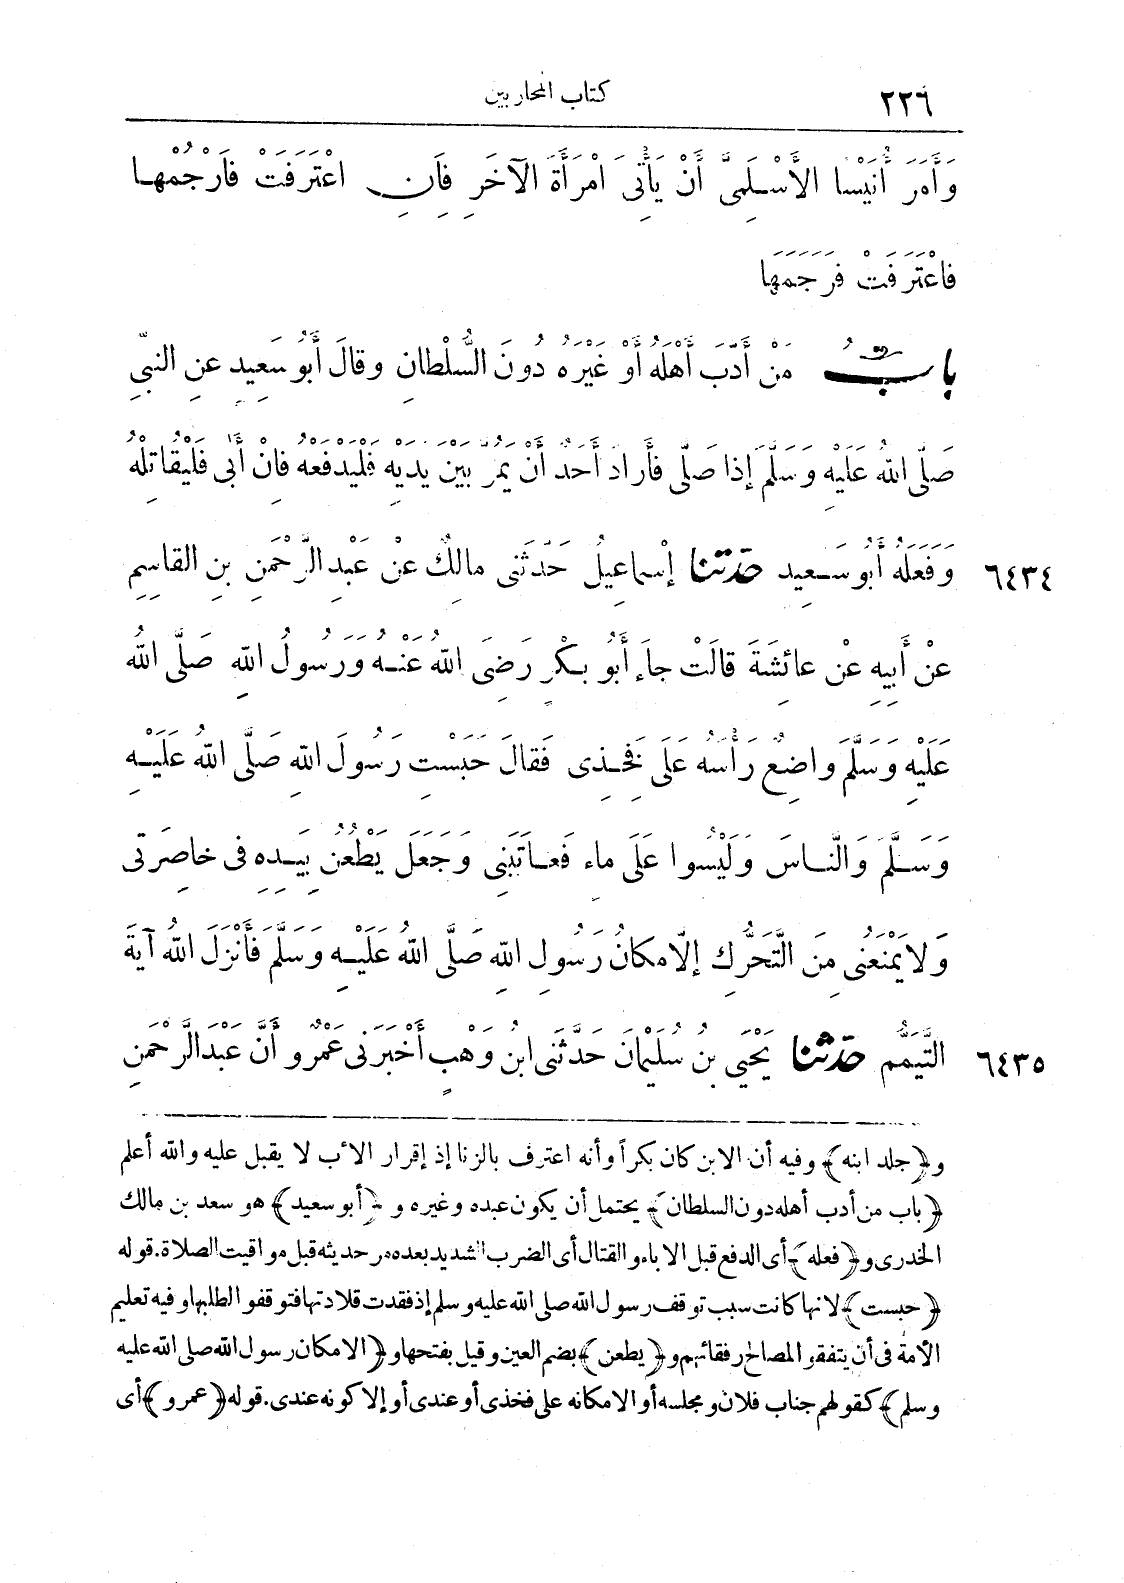 ٢٢٦ كتاب المحاربين
وَأَمَرَ أُنَيْسًا الأَسْلَمِىَّ أَنْ يَأْتِىَ امْرَأَةَ الآخَرِ فَإِنِ اعْتَرَفَتْ فَارْجُمْها
فَاعْتَرَفَتْ فَرَجَمَهَا
بابُ مَنْ أَدَّبَ أَهْلَهُ أَوْ غَيْرَهُ دُونَ السُّلْطانِ وقالَ أَبُو سَعِيدٍ عنِ النبىِّ
صَلَّى اللهُ عَلَيْهِ وَسَلَّمَ إذا صَلَّى فأَرادَ أَحَدٌ أَنْ يَمُرَّ بَيْنَ يديهِ فَلْيَدْفَعْهُ فإنْ أَبَى فَلْيُقَاتِلْهُ
وَفَعَلَهُ أَبُو سَعِيدٍ حدثنا إسماعِيلُ حَدَّثَنى مالِكٌ عنْ عَبْدِ الرَّحْمَنِ بنِ القاسِمِ ٦٤٣٤
عنْ أَبِيهِ عنْ عائِشَةَ قالَتْ جاءَ أَبُو بَكْرٍ رَضِىَ اللهُ عَنْهُ وَرَسُولُ اللهِ صَلَّى اللهُ
عَلَيْهِ وَسَلَّمَ واضِعٌ رَأْسَهُ عَلَى فَخِذِى فَقَالَ حَبَسْتِ رَسُولَ اللهِ صَلَّى اللهُ عَلَيْهِ
وَسَلَّمَ وَالنَّاسَ وَلَيْسُوا عَلَى ماء فَعَاتَبَنِى وَجَعَلَ يَطْعُنُ بِيَدِهِ فى خاصِرَتى
وَلا يَمْنَعُنِى مِنَ التَّحَرُّكِ إلَّا مَكانُ رَسُولِ اللهِ صَلَّى اللهُ عَلَيْهِ وَسَلَّمَ فَأَنْزَلَ اللهُ آيَةَ
التَّيَمُّمِ حدثنا يَحْيَى بنُ سُلَيْمانَ حَدَّثَنى ابنُ وَهْبٍ أَخْبَرَنى عَمْرٌو أَنَّ عَبْدَ الرَّحْمَنِ ٦٤٣٥
و﴿جلد ابنه﴾ وفيه أن الابن كان بكراً وأنه اعترف بالزنا إذ إقرار الأب لا يقبل عليه والله أعلم
﴿باب من أدب أهله دون السلطان﴾ يحتمل أن يكون عبده وغيره و ﴿أبو سعيد﴾ هو سعد بن مالك
الخدرى و﴿فعله﴾ أى الدفع قبل الاباء والقتال أى الضرب الشديد بعده مر حديثه قبل مواقيت الصلاة. قوله
﴿حبست﴾ لانها كانت سبب توقف رسول الله صلى الله عليه وسلم إذ فقدت قلادتها فتوقفوا لطلبها وفيه تعليم
الأمة فى أن يتفقوا لمصالح رفقائهم و﴿يطعن﴾ بضم العين وقيل بفتحها و﴿الا مكان رسول الله صلى الله عليه
وسلم﴾ كقولهم جناب فلان ومجلسه أو الا مكانه على فخذى أو عندى أو إلا كونه عندى. قوله ﴿عمرو﴾ أى